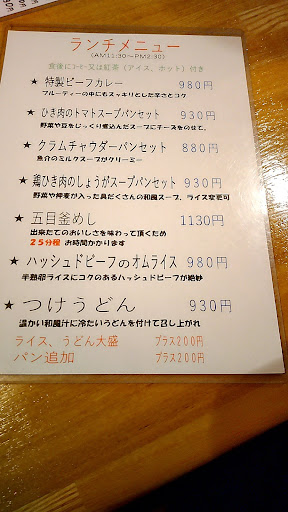 ランチメニュー
(AM11:30~PM2:30)
食後にコーヒー又は紅茶(アイス、ホット)付き
★ 特製ビーフカレー 980円
フルーティーの中にもスッキリとした辛さとコク
★ ひき肉のトマトスープパンセット 930円
野菜や豆をじっくり煮込んだスープにチーズをのせて、
★ クラムチャウダーパンセット 880円
魚介のミルクスープがクリーミー
★ 鶏ひき肉のしょうがスープパンセット 930円
野菜や押麦が入った具だくさんの和風スープ、ライス変更可
★ 五目釜めし 1130円
出来たてのおいしさを味わって頂くため
25分程 お時間かかります
★ ハッシュドビーフのオムライス 980円
半熟卵ライスにコクのあるハッシュドビーフが絶妙
★ つけうどん 930円
温かい和風汁に冷たいうどんを付けて召し上がれ
ライス、うどん大盛 プラス200円
パン追加 プラス200円